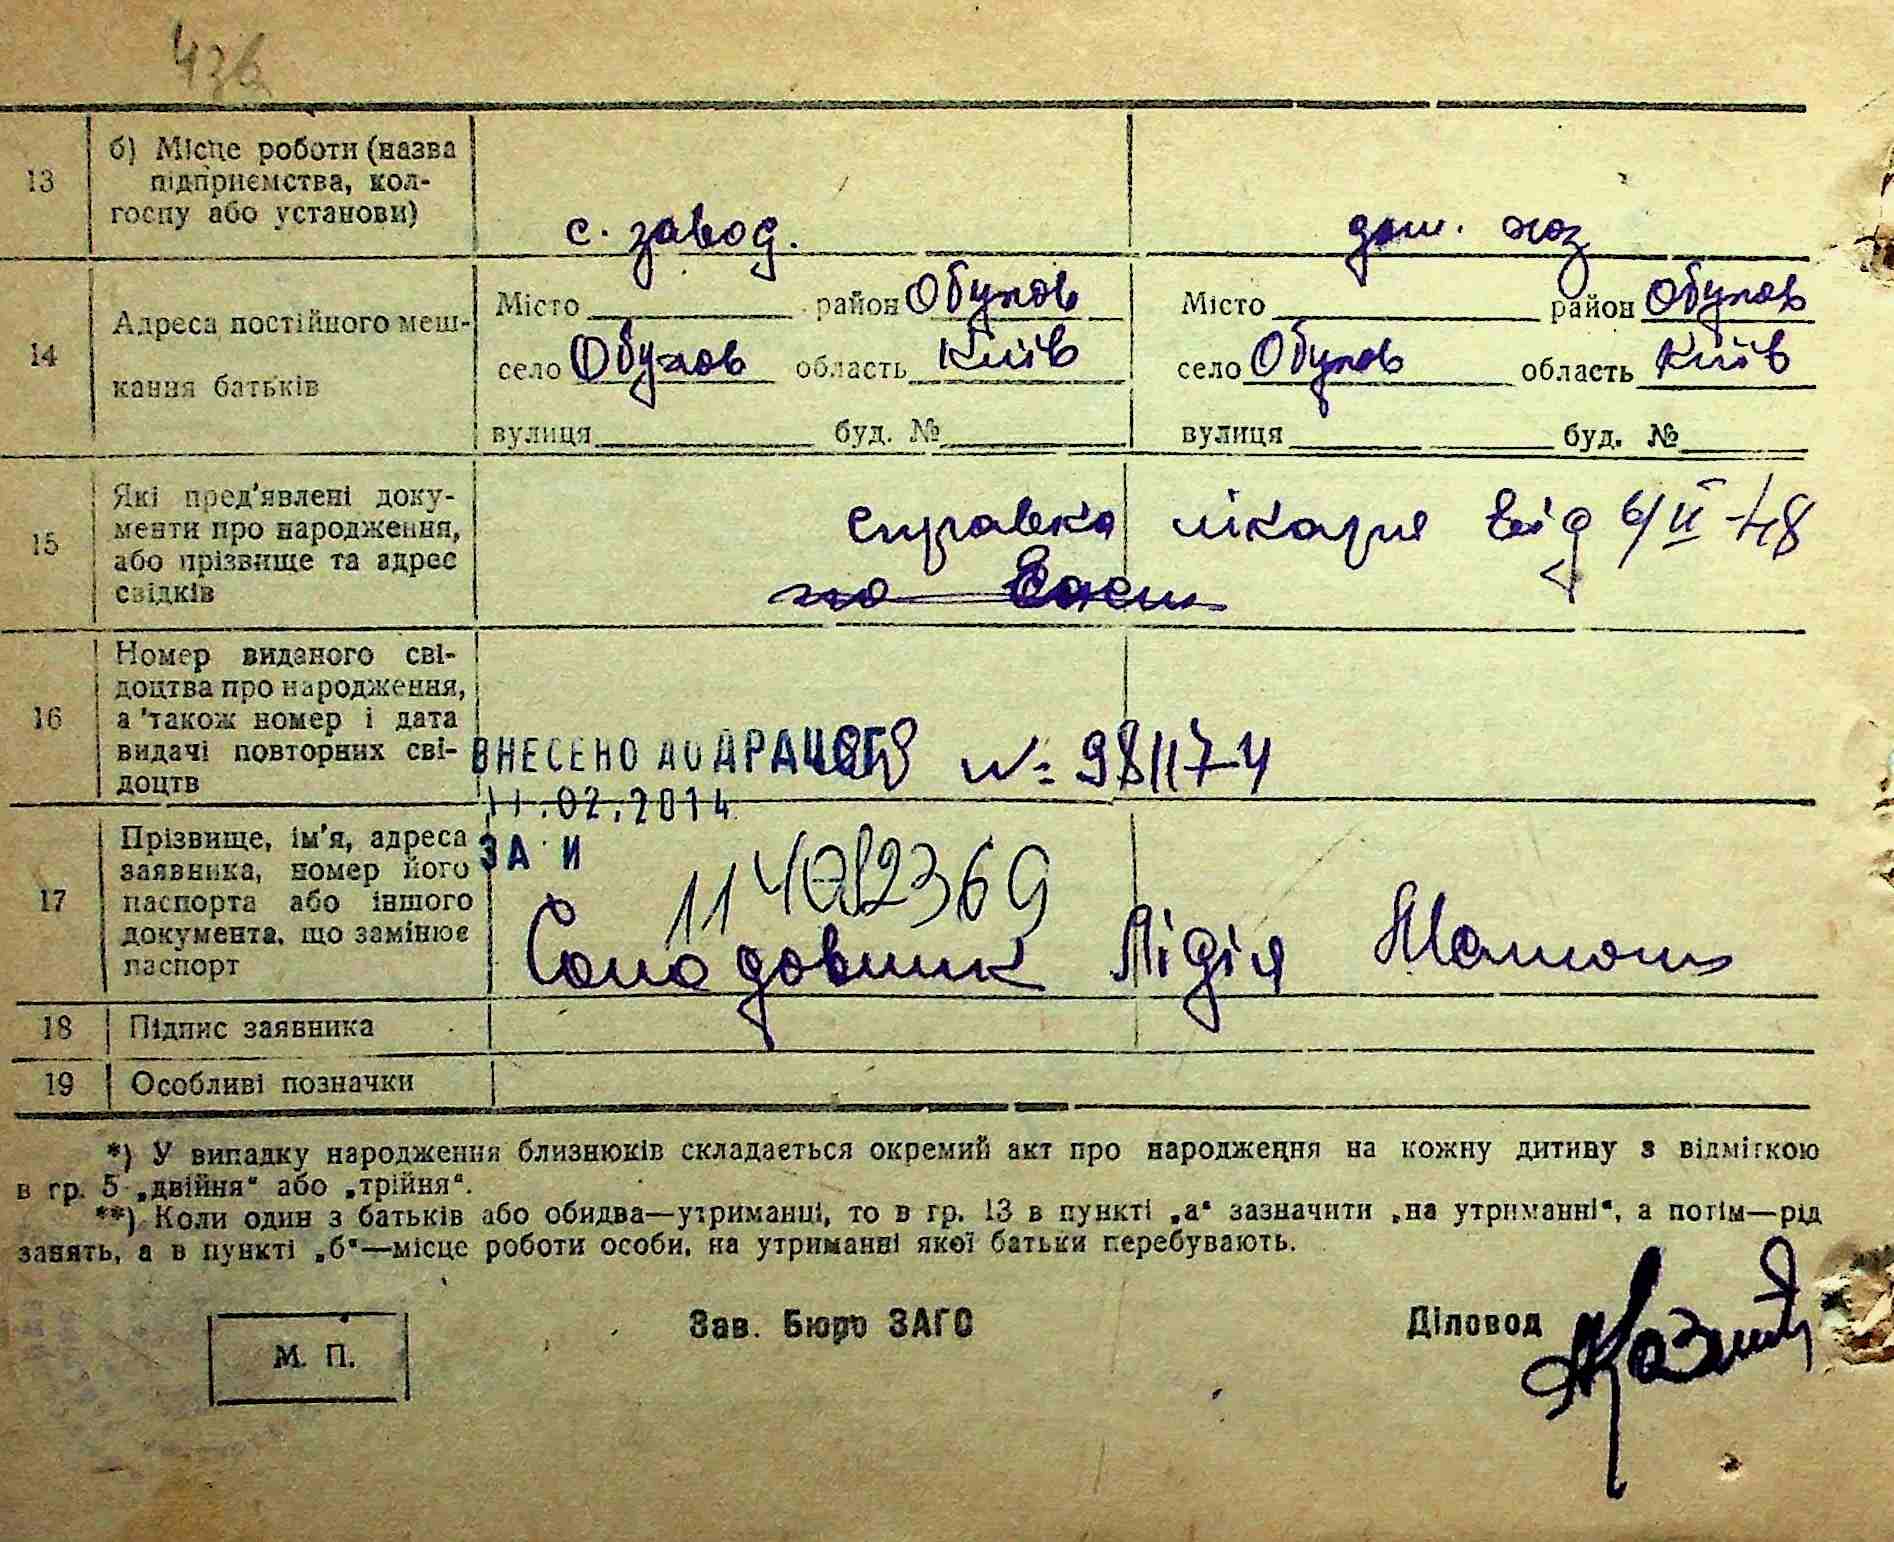 436
13 б) Місце роботи (назва
підприємства, кол-
госпу або установи)
с. завод. дом. хоз
14 Адреса постійного меш-
кання батьків
Місто район Обухов Місто район Обухов
село Обухов область Київ село Обухов область Київ
вулиця буд. № вулиця буд. №
15 Які пред'явлені доку-
менти про народження,
або прізвище та адрес
свідків
справка лікаря від 6/II-48
16 Номер виданого сві-
доцтва про народження,
а також номер і дата
видачі повторних сві-
доцтв
ВНЕСЕНО ДО ДРАЦСГ № 981174
11.02.2014
ЗА И
17 Прізвище, ім'я, адреса
заявника, номер його
паспорта або іншого
документа, що замінює
паспорт
114082369
Солодовник Лідія
18 Підпис заявника
19 Особливі позначки
*) У випадку народження близнюків складається окремий акт про народження на кожну дитину з відміткою
в гр. 5 „двійня“ або „трійня“.
**) Коли один з батьків або обидва—утриманці, то в гр. 13 в пункті „а“ зазначити „на утриманні“, а потім—рід
занять, а в пункті „б“—місце роботи особи, на утриманні якої батьки перебувають.
М. П. Зав. Бюро ЗАГС Діловод